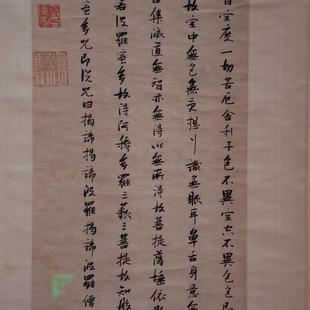 皆空度一切苦厄舍利子色不異空空不異色色即
故空中無色無受想行識無眼耳鼻舌身意無
苦集滅道無智亦無得以無所得故菩提薩埵依
若波羅蜜多故得阿耨多羅三藐三菩提故知般
蜜多咒即說咒曰揭諦揭諦波羅揭諦波羅僧